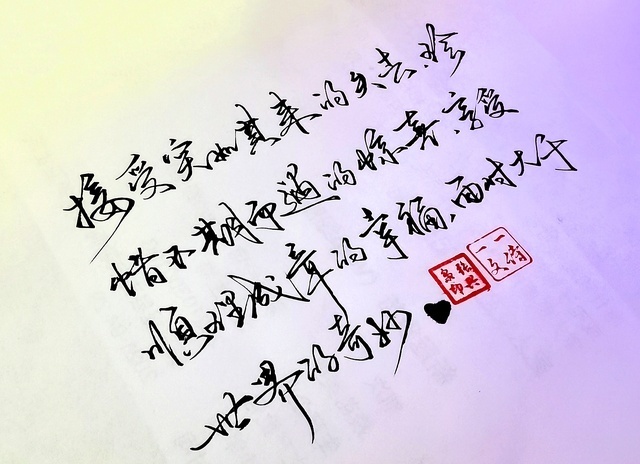 接受突如其来的失去、珍
惜不期而遇的惊喜、享受
顺理成章的幸福、面对大千
世界的奇妙